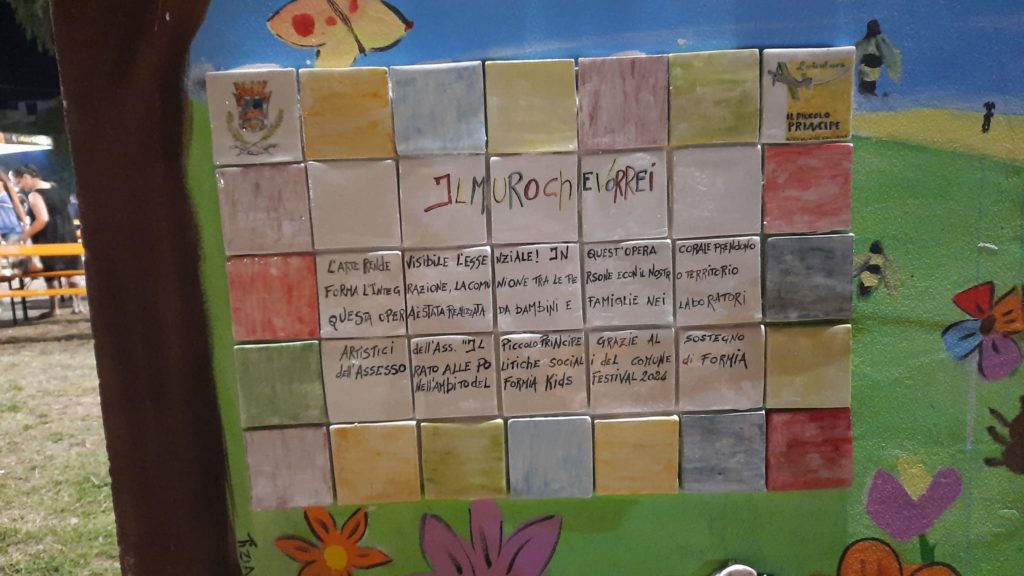 Ludoteca
IL PICCOLO
PRINCIPE
IL MURO CHE VORREI
L'ARTE RENDE VISIBILE L'ESSENZIALE! IN QUEST'OPERA CORALE PRENDONO
FORMA L'INTEGRAZIONE, LA COMUNIONE TRA LE PERSONE E CON IL NOSTRO TERRITORIO
QUESTA OPERA È STATA REALIZZATA DA BAMBINI E FAMIGLIE NEI LABORATORI
ARTISTICI dell'ASS. "IL PICCOLO PRINCIPE GRAZIE AL SOSTEGNO
dell'ASSESSORATO ALLE POLITICHE SOCIALI del COMUNE di FORMIA
NELL'AMBITO DEL FORMIA KIDS FESTIVAL 2021